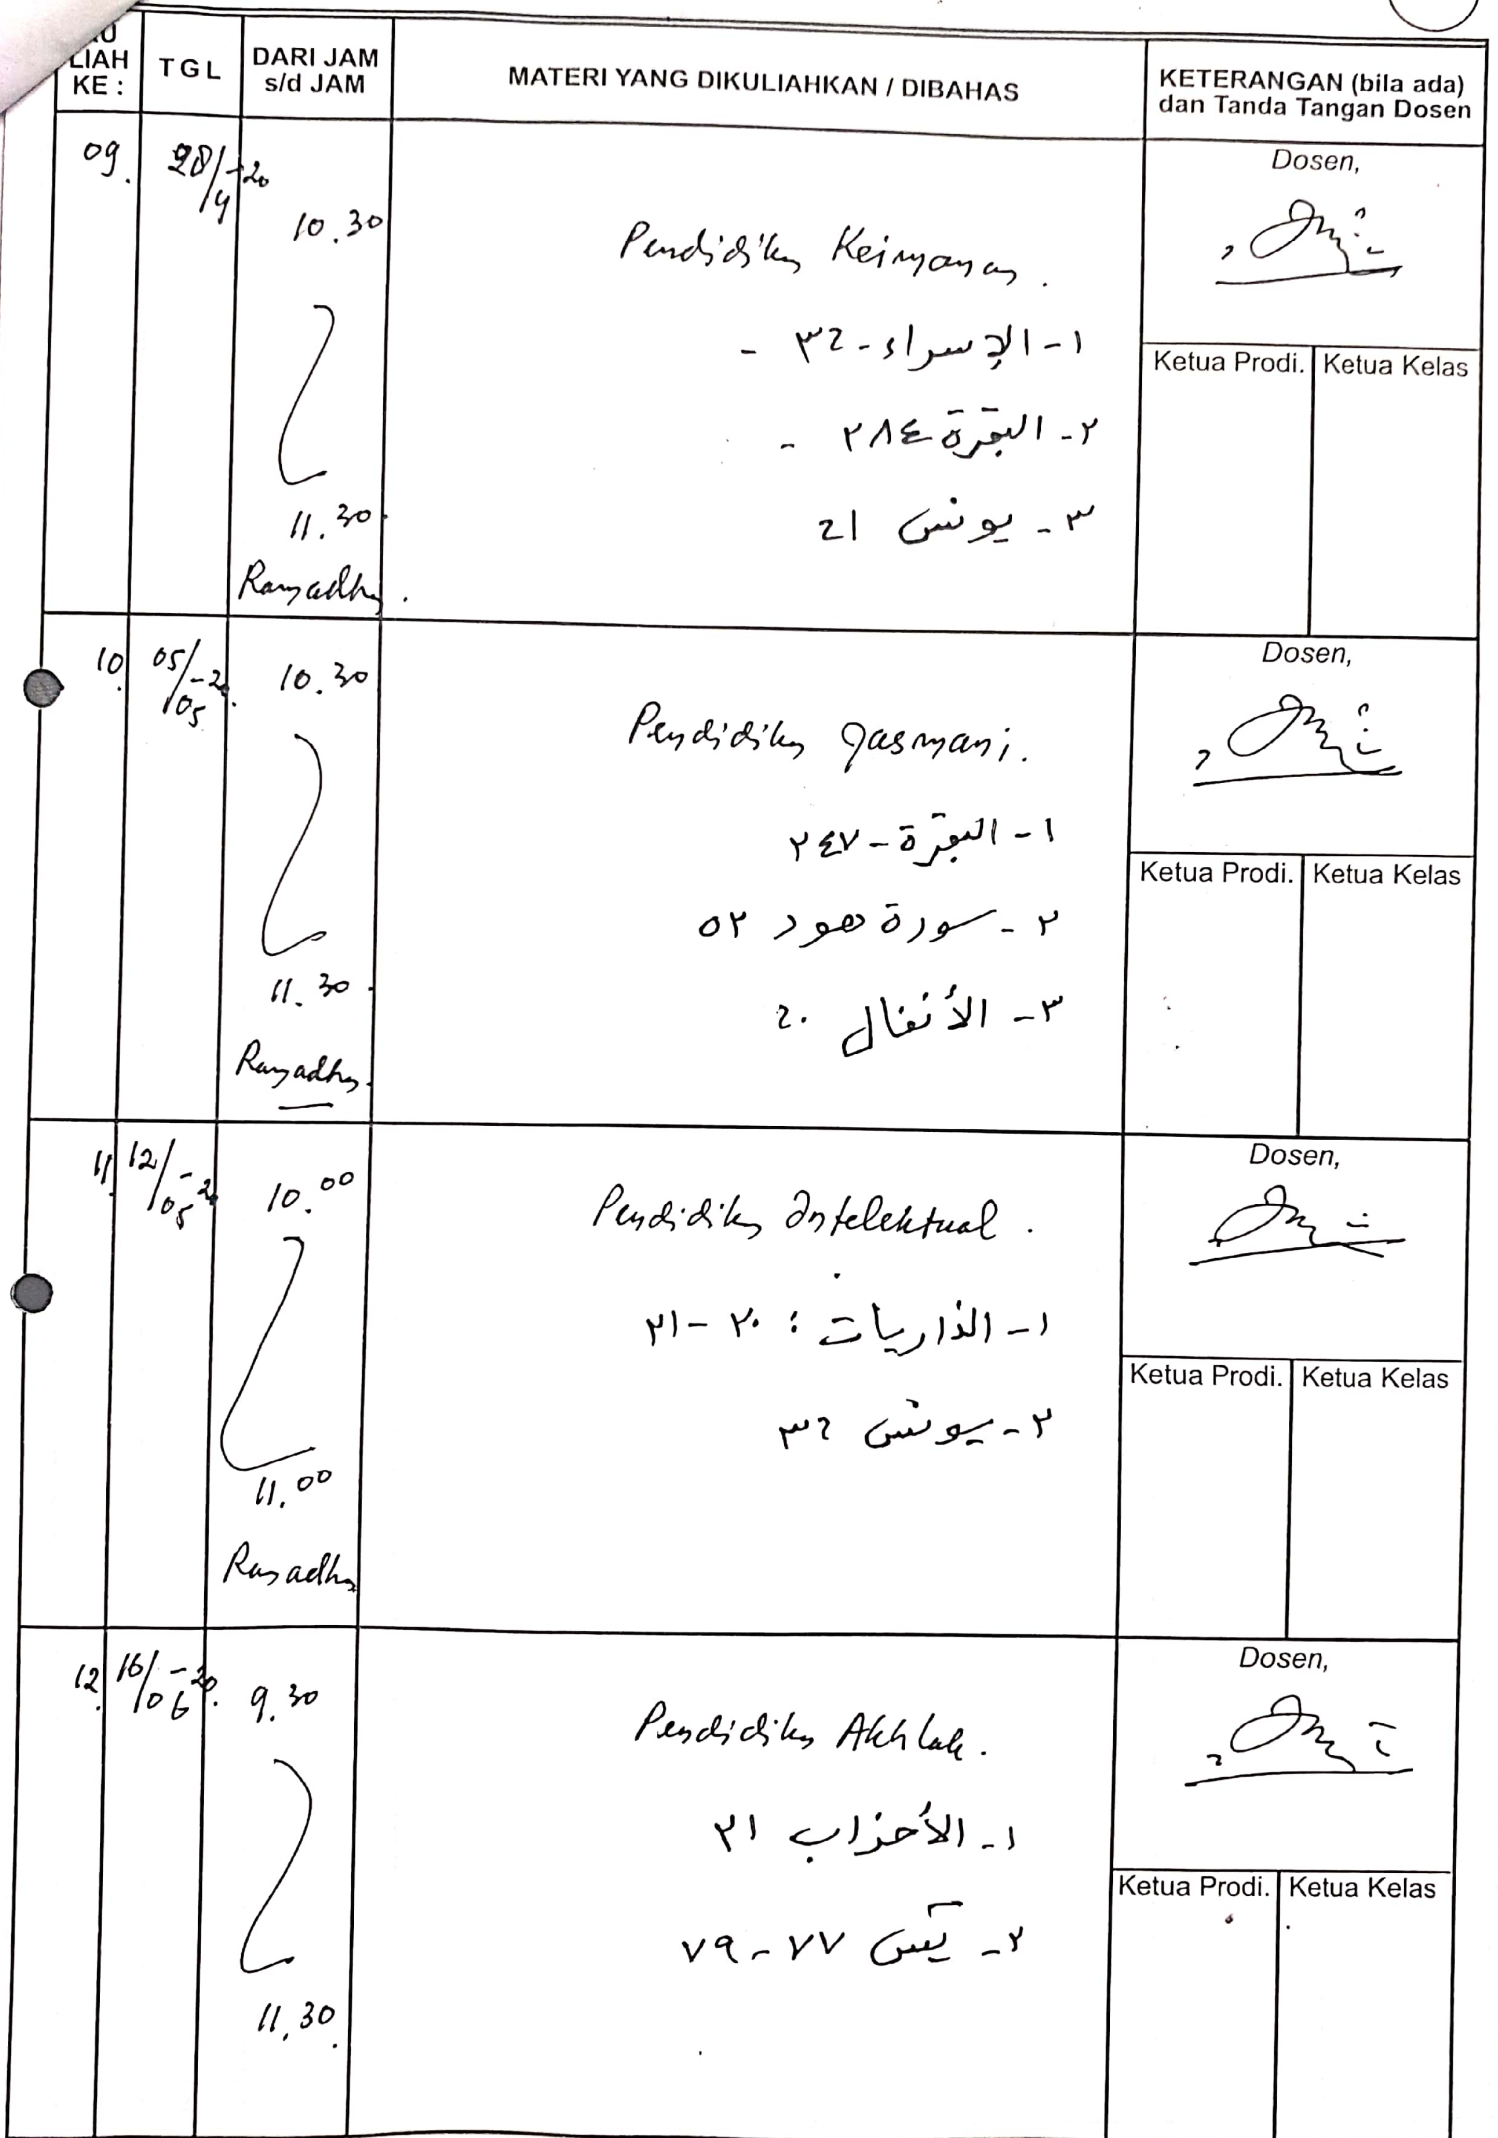 LIAH KE :
TGL
DARI JAM s/d JAM
MATERI YANG DIKULIAHKAN / DIBAHAS
KETERANGAN (bila ada) dan Tanda Tangan Dosen
09.
28/4-20
10.30
11.30
Ramadhan.
Pendidikan Keimanan.
١- الإسراء - ٣٦ -
٢- البقرة ٢٨٤ -
٣- يونس ٦١
Dosen,
Ketua Prodi.
Ketua Kelas
10.
05/05-20.
10.30
11.30.
Ramadhan.
Pendidikan Jasmani.
١- البقرة - ٢٤٧
٢- سورة هود ٥٢
٣- الأنفال ٦٠
Dosen,
Ketua Prodi.
Ketua Kelas
11.
12/05-20
10.00
11.00
Ramadhan
Pendidikan Intelektual.
١- الذاريات : ٢٠ - ٢١
٢- يونس ٣٦
Dosen,
Ketua Prodi.
Ketua Kelas
12.
16/06-20.
9.30
11.30.
Pendidikan Akhlak.
١- الأحزاب ٢١
٢- يٓس ٧٧ - ٧٩
Dosen,
Ketua Prodi.
Ketua Kelas